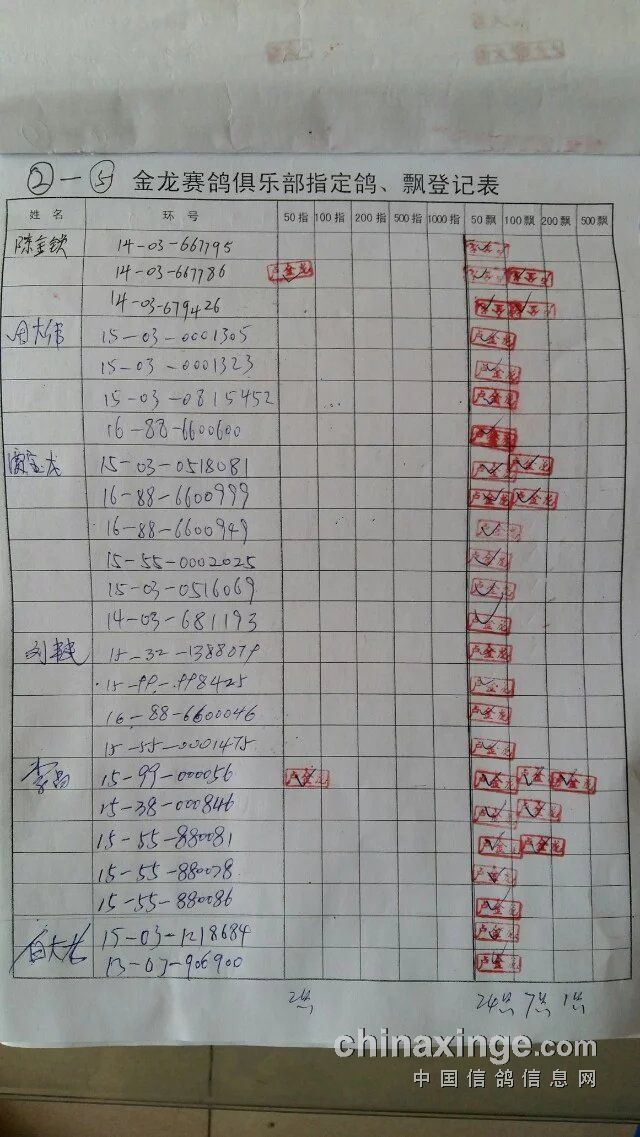 ②-⑤ 金龙赛鸽俱乐部指定鸽、飘登记表
姓名 环号 50指 100指 200指 500指 1000指 50飘 100飘 200飘 500飘
陈金锁 14-03-667795
14-03-667786 卢金龙
14-03-679426
15-03-0001305 卢金龙
15-03-0001323 卢金龙
15-03-0815452 卢金龙
16-88-6600600 卢金龙
15-03-0518081 卢金龙 卢金龙
16-88-6600999 卢金龙 卢金龙
16-88-6600949 卢金龙
15-55-0002025 卢金龙
15-03-0516069 卢金龙
14-03-681193 卢金龙
15-32-1388079 卢金龙
15-99-998425 卢金龙
16-88-6600046 卢金龙
15-55-0001475 卢金龙
15-99-000056 卢金龙 卢金龙 卢金 卢金龙
15-38-000846 卢金龙 卢金龙
15-55-880081 卢金 卢金龙
15-55-880078 卢金龙
15-55-880086 卢金龙
15-03-1218684 卢金龙
13-03-906900 卢金龙
2 24 7 1
chinaxinge.com
中国信鸽信息网